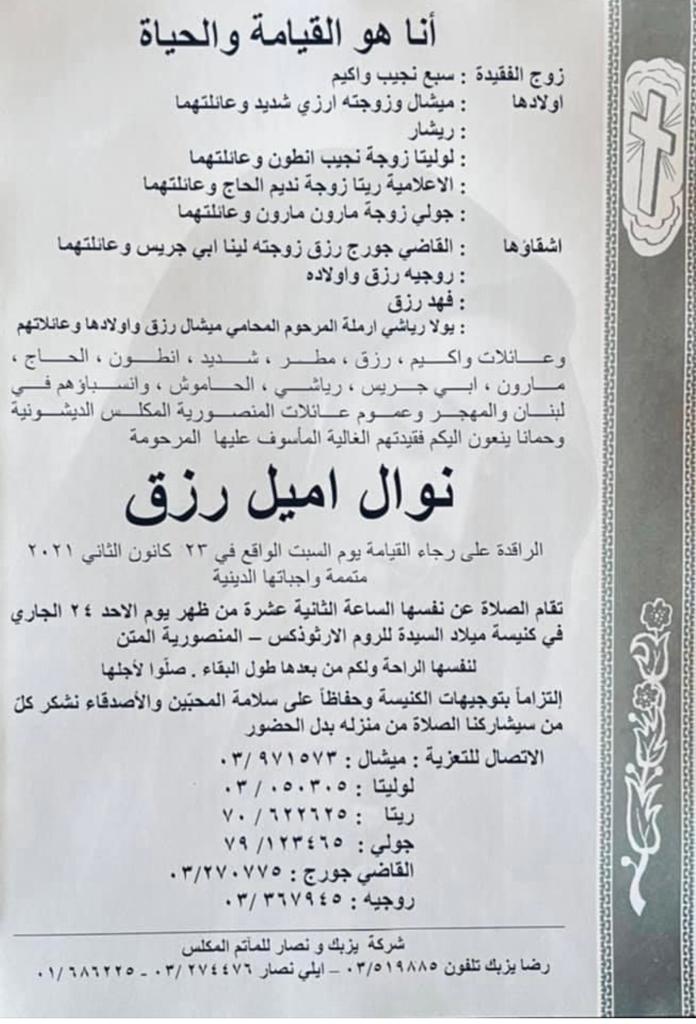 أنا هو القيامة والحياة
زوج الفقيدة : سبع نجيب واكيم
اولادها : ميشال وزوجته ارزي شديد وعائلتهما
: ريشار
: لوليتا زوجة نجيب انطون وعائلتهما
: الاعلامية ريتا زوجة نديم الحاج وعائلتهما
: جولي زوجة مارون مارون وعائلتهما
اشقاؤها : القاضي جورج رزق زوجته لينا ابي جريس وعائلتهما
: روجيه رزق واولاده
: فهد رزق
: يولا رياشي ارملة المرحوم المحامي ميشال رزق واولادها وعائلاتهم
وعائلات واكيم ، رزق ، مطر ، شديد ، انطون ، الحاج ،
مارون ، ابي جريس ، رياشي ، الحاموش ، وانسباؤهم في
لبنان والمهجر وعموم عائلات المنصورية المكلس الديشونية
وحمانا ينعون اليكم فقيدتهم الغالية المأسوف عليها المرحومة
نوال اميل رزق
الراقدة على رجاء القيامة يوم السبت الواقع في ٢٣ كانون الثاني ٢٠٢١
متممة واجباتها الدينية
تقام الصلاة عن نفسها الساعة الثانية عشرة من ظهر يوم الاحد ٢٤ الجاري
في كنيسة ميلاد السيدة للروم الارثوذكس – المنصورية المتن
لنفسها الراحة ولكم من بعدها طول البقاء . صلّوا لأجلها
إلتزاماً بتوجيهات الكنيسة وحفاظاً على سلامة المحبّين والأصدقاء نشكر كلّ
من سيشاركنا الصلاة من منزله بدل الحضور
الاتصال للتعزية : ميشال : ٠٣/٩٧١٥٧٣
لوليتا : ٠٣/٠٥٠٣٠٥
ريتا : ٧٠/٦٢٢٦٢٥
جولي : ٧٩/١٢٣٤٦٥
القاضي جورج : ٠٣/٢٧٠٧٧٥
روجيه : ٠٣/٣٦٧٩٤٥
شركة يزبك و نصار للمآتم المكلس
رضا يزبك تلفون ٠٣/٥١٩٨٨٥ - ايلي نصار ٠٣/٢٧٤٤٧٦ - ٠١/٦٨٦٢٢٥